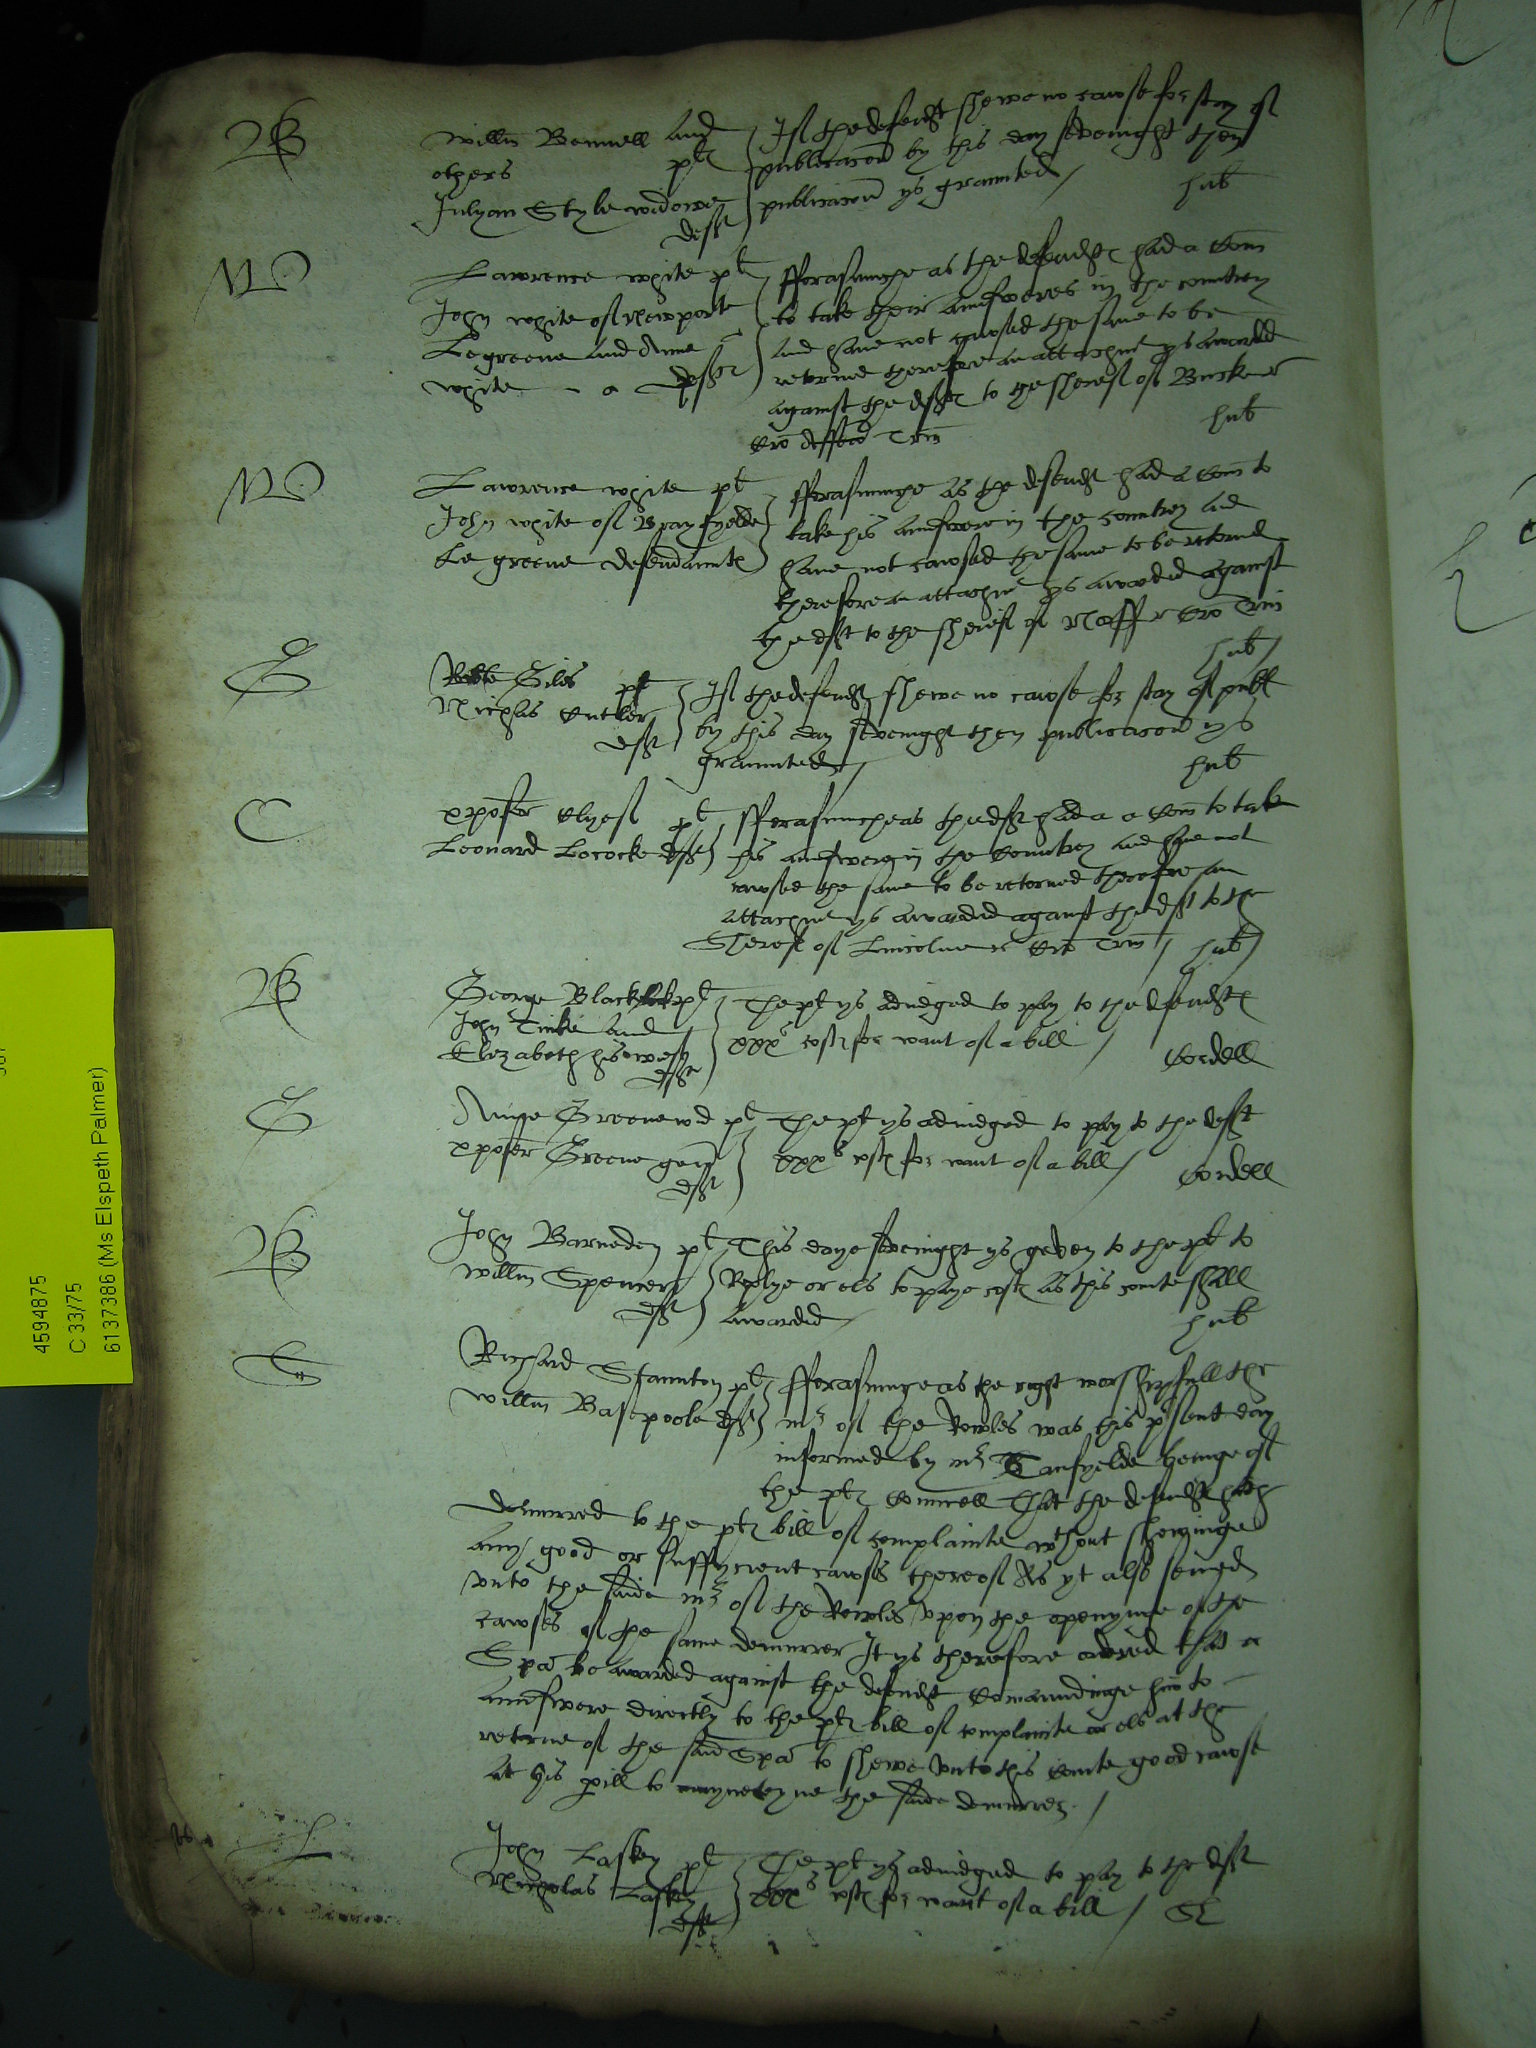 B
Willm Bonnell and
others plt
Julyan Style widowe
deft
If the defendt shewe no cawse for stay of
publicacon by this day sevenight then
publicacon ys graunted /
hub
W
Lawrence white plt
John white of Newporte
Legreene and Anne
white defts
fforasmuche as the defendts had a Com
to take their aunsweres in the countrey
and have not cawsed the same to be
retorned therefore an attachmt ys awarded
against the defts to the sheref of Buck
hub
W
Lawrence white plt
John white of Brayfyelde
Le greene defendaunte
fforasmuche as the defendt had a Com to
take his aunswere in the countrey and
have not cawsed the same to be retorned
therefore an attachmt ys awarded against
the deft to the sheref of
hub /
G
Robte Giles plt
Nichas Cutler
deft
If the defendt shewe no cawse for stay of publ
by this day sevenight then publicacon ys
graunted /
hub
C
xpofer plt
Leonard Lococke deft
fforasmuche as the deft had a Com to take
his aunswere in the Countrey and have not
cawsed the same to be retorned therefore an
attachmt ys awarded against the deft to the
Sheref of Lincolne / hub /
B
George Blacklock plt
John Tinke and
Elezabeth his wief
defts
The plt ys adiudged to pay to the defendts
xxxs costs for want of a bill /
Cordell
G
Greene wid plt
xpofer Greene gen
deft
The plt ys adiudged to pay to the defft
xxxs costs for want of a bill /
Cordell
B
John Barneden plt
Willm Spencer
deft
This daye sevenight ys geven to the plt to
Replye or els to paye costs as this courte shall
awarded
hub
S
Richard Staunton plt
Willm Basepoole deft
fforasmuche as the right worshipfull the
mr of the Rowles was this psent day
informed by mr Tanfyelde beinge of
the plts Councell That the defendt hath
demurred to the plts bill of complainte wthout shewinge
any good or suffycient cawses thereof As yt also semed
unto the saide mr of the Rowles upon the openynge of the
cawses of the same demurrer It ys therefore ordered that a
Spa be awarded against the defendt Comaundinge him to
aunswere directly to the plts bill of complainte or els at the
retorne of the said Spa to shewe unto this Courte good cawse
at his pill to maynteyne the saide demurrer /
L
John Laskey plt
Nicholas Laskey
deft
The plt ys adiudged to pay to the deft
xxxs costs for want of a bill /
4594875
C 33/75
6137386 (Ms Elspeth Palmer)